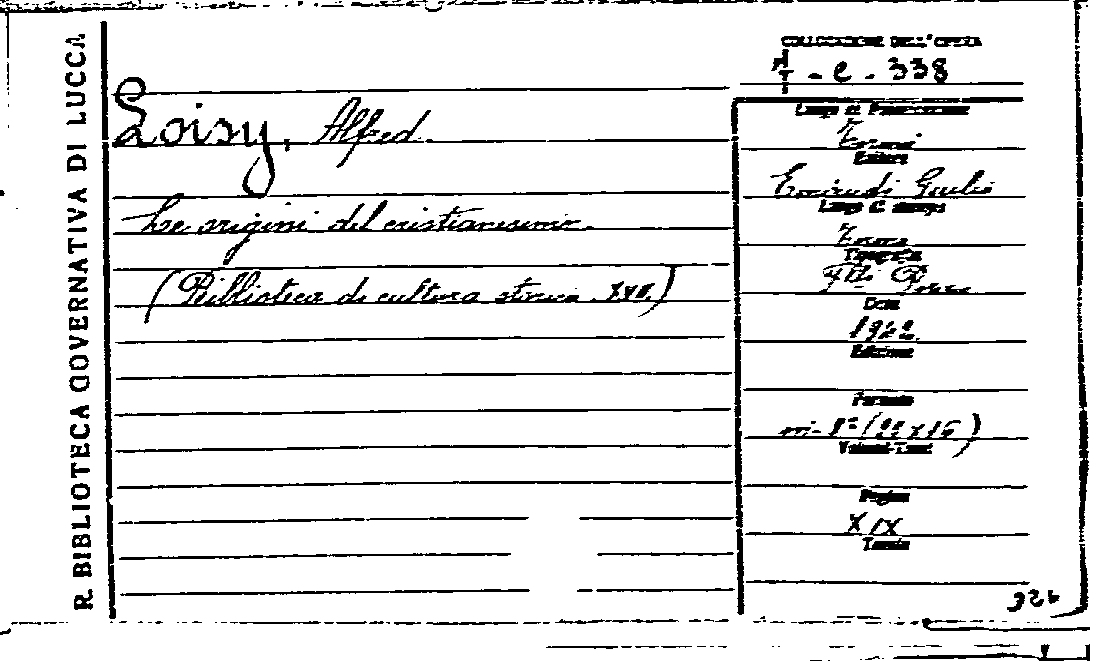 R. BIBLIOTECA GOVERNATIVA DI LUCCA
COLLOCAZIONE DELL'OPERA
- e - 338
Loisy, Alfred
Le origini del cristianesimo.
(Biblioteca di cultura storica XVII.)
Luogo di Pubblicazione
Torino
Editore
Einaudi Giulio
Luogo di stampa
Torino
Tipografia
F.lli Pozzo
Data
Edizione
Formato
in-8° (22x16)
Volumi-Tomi
Pagine
XIX
Tavole